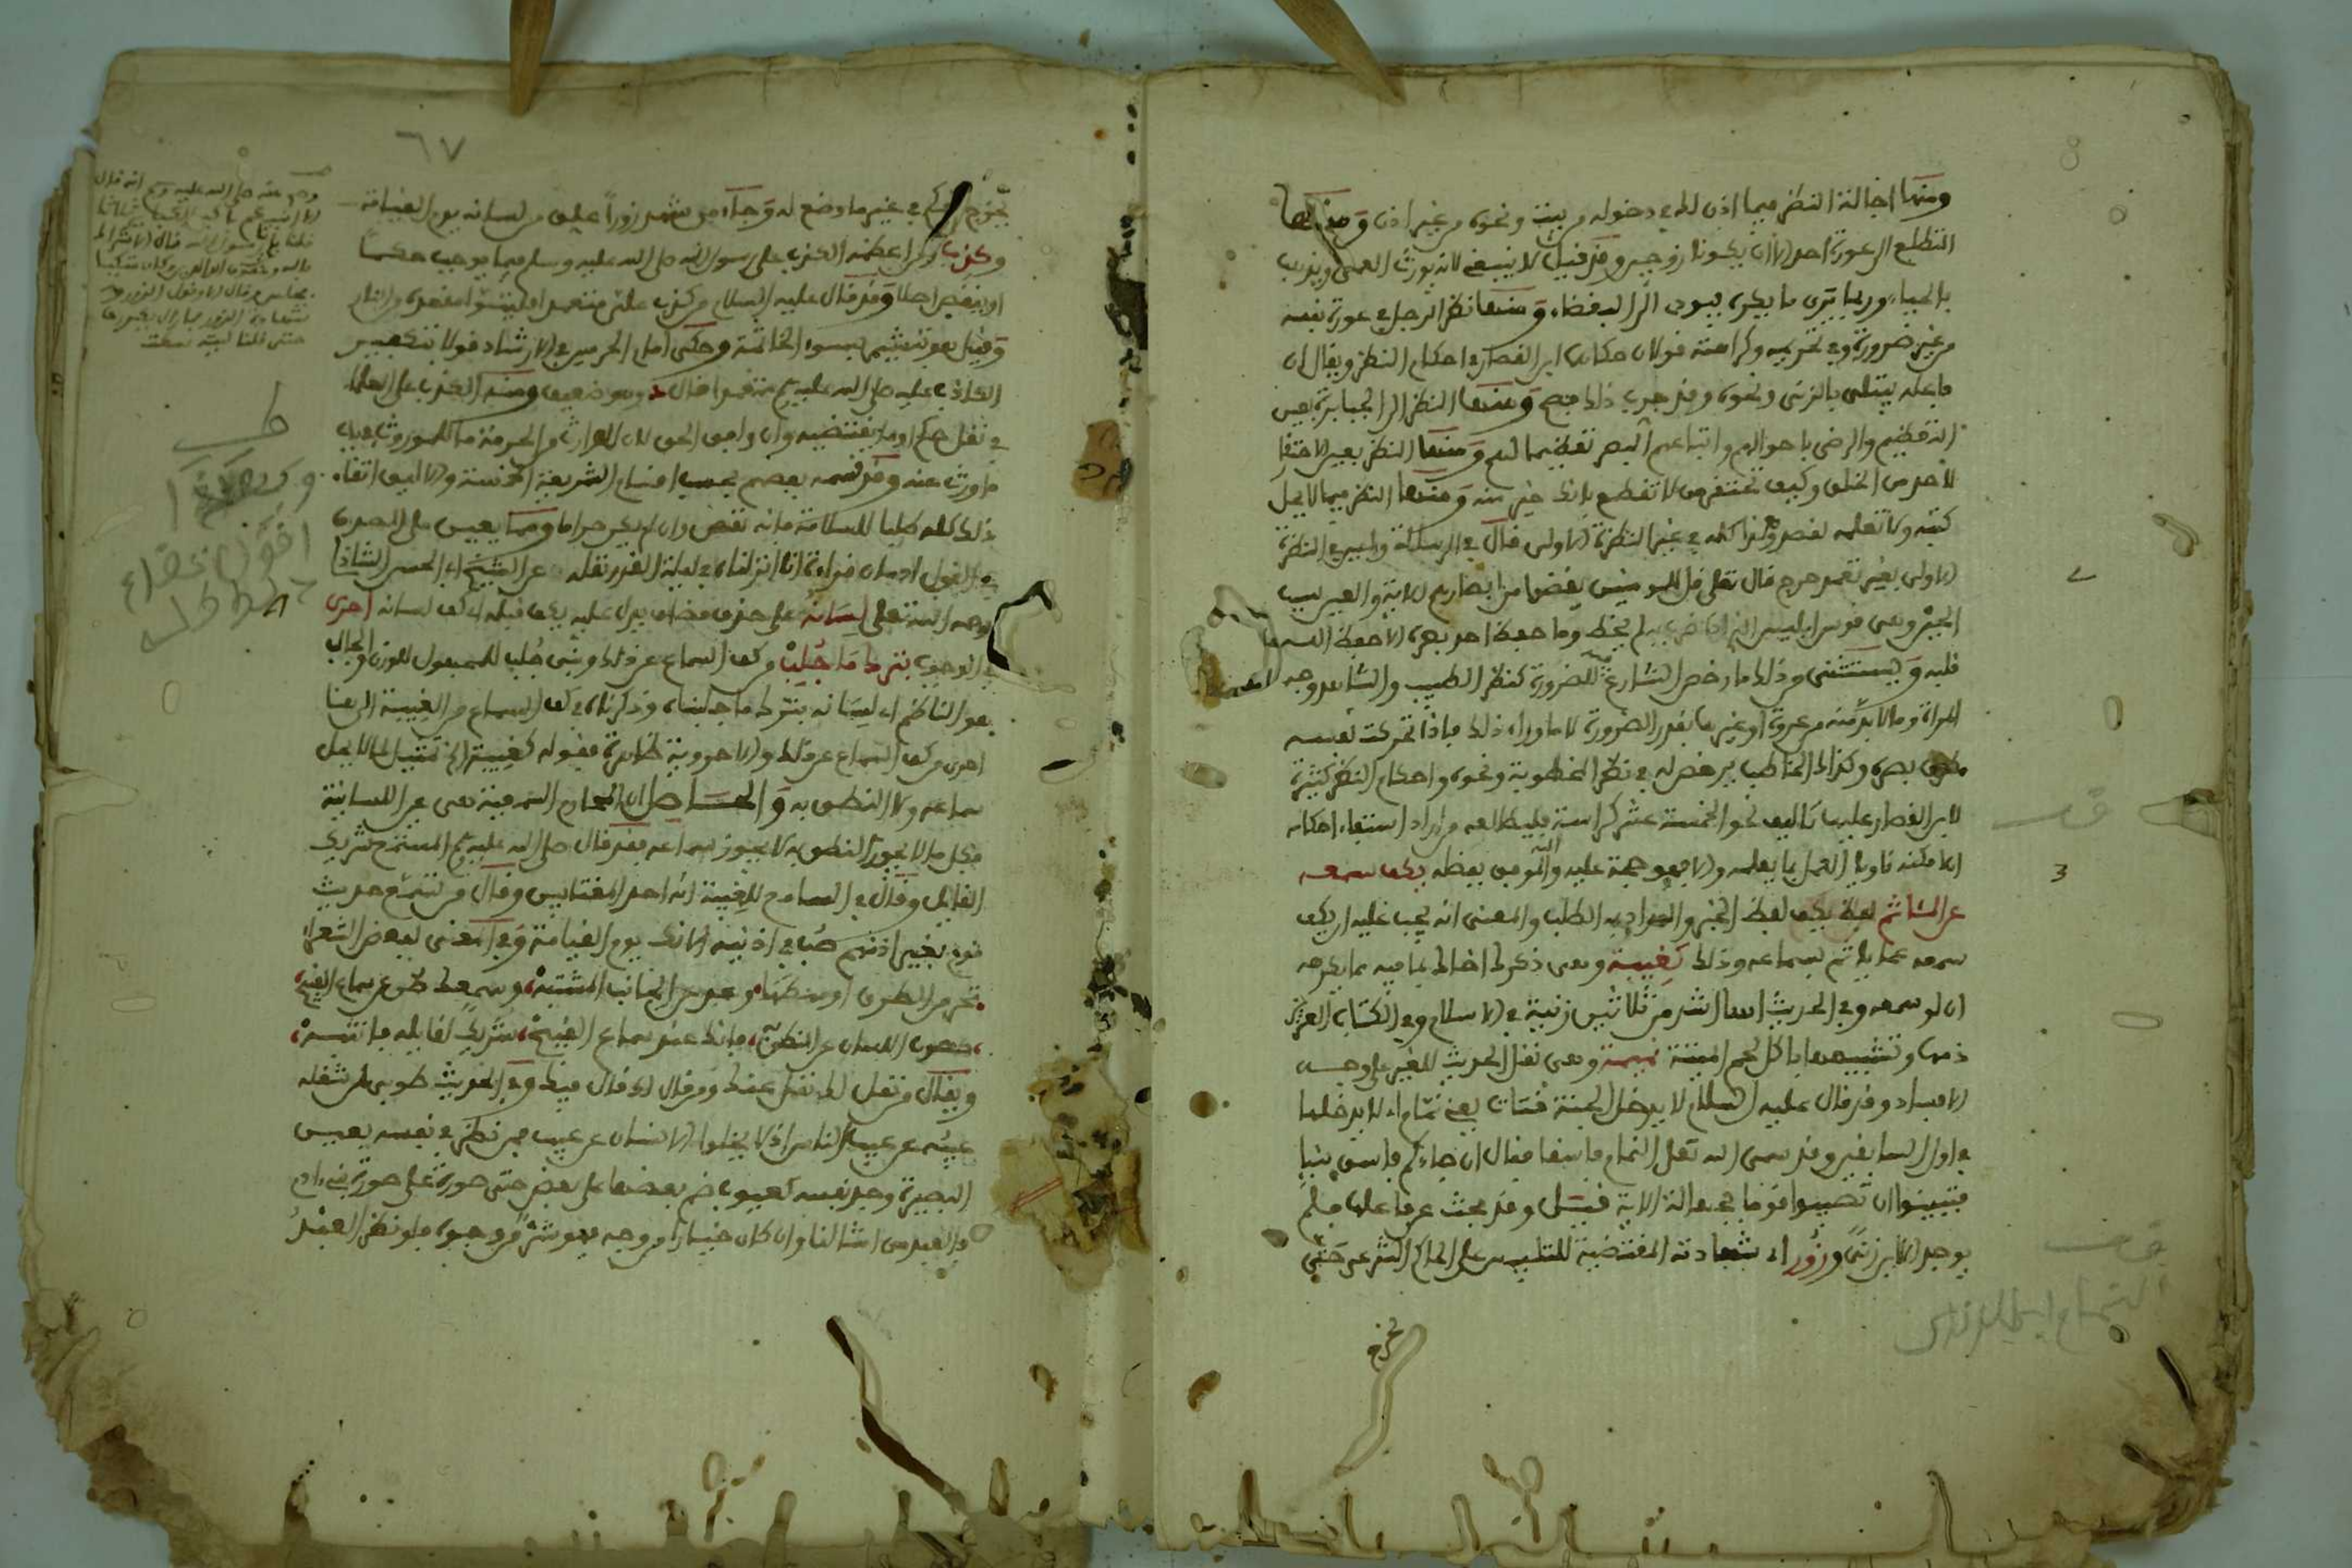 ومنها اجالة النظر فيما اذن له في دخوله من بيت ونحوه من غير اذن ومنها
التطلع الى عورة احد الا ان يكونا زوجين وقد قيل لا ينبغي لانه يورث العمى ويذهب
بالحياء وربما يرى ما يكره فيودي الى البغضاء ومنها نظر الرجل في عورة نفسه
من غير ضرورة وفي تحريمه وكراهته قولان حكاهما ابن القصار في احكام النظر ويقال ان
فاعله يبتلى بالزنى ونحوه وقد جرب ذلك فصح ومنها النظر الى الجبابرة بعين
التعظيم والرضى باحوالهم واتباعهم البصر تعظيما لهم ومنها النظر بعين الاحتقار
لاحد من الخلق وكيف تحتقر من لا تقطع بانك خير منه ومنها النظر فيما لا يحل
كتبه ولا تعلمه لقصد وهذا كله في غير النظرة الاولى قال في الرسالة وليس في النظرة
الاولى بغير تعمد حرج قال تعلى قل للمومنين يغضوا من ابصارهم الاية والعين سبب
الخير وهي قوس ابليس الذي ضرب به فلم يخط وما حفظ احد بصره الا حفظ الله
قلبه ويستثنى من ذلك ما رخص الشارع فيه للضرورة كنظر الطبيب والشاهد وجه
المراة وما لا بد منه من عورة او غيرها بقدر الضرورة لا ما وراء ذلك فاذا تحركت نفسه
صرف بصره وكذلك الخاطب يرخص له في نظر المخطوبة ونحوه واحكام النظر كثيرة
لابن القصار عليها تاليف نحو الخمسة عشر كراسة فليطالعه من اراد استيفاء احكامه
ان امكنه ناويا العمل بما يعلمه والا فهو حجة عليه والله الموفق بفضله يكف سمعه
عن المئاثم لفظ يكف لفظ الخبر والمراد به الطلب والمعنى انه يجب عليه ان يكف
سمعه عما ياثم بسماعه وذلك كغيبة وهي ذكرك اخاك بما فيه مما يكرهه
ان لو سمعه وفي الحديث انها اشد من ثلاثين زنية في الاسلام وفي الكتاب العزيز
ذمها وتشبيهها باكل لحم الميتة نميمة وهي نقل الحديث للغير على وجه
الافساد وقد قال عليه السلام لا يدخل الجنة قتات يعني نمام اي لا يدخلها
في اول السابقين وقد سمى الله تعلى النمام فاسقا فقال ان جاءكم فاسق بنبا
فتبينوا ان تصيبوا قوما بجهالة الاية قيل وقد بحث عرفا عليه فلم
يوجد الا ابن زنى وزور اي شهادته المقتضية للتلبيس على الحاكم الشرعي حتى
يخرج
٦٧
يخرج الحكم في غير ما وضع له وجاء من شهد زورا علق من لسانه يوم القيامة
وكذب ومن اعظمه الكذب على رسول الله صلى الله عليه وسلم فيما يوجب حكما
او ينقض اصلا وقد قال عليه السلام من كذب علي متعمدا فليتبوا مقعده من النار
وقيل هو تبشير بسوء الخاتمة وحكى امام الحرمين في الارشاد قولا بتكفير
الكاذب عليه صلى الله عليه وسلم متعمدا قال وهو ضعيف ومنه الكذب على العلماء
في نقل حكم او ما يقتضيه وان وافق الحق لان للوارث من الحرمة ما للموروث فيما
ورث عنه وقد قسمه بعضهم بحسب اقسام الشريعة الخمسة والاليق اتقاء
ذلك كله طلبا للسلامة فانه نقص وان لم يكن حراما ومما يعين على الصدق
في القول ادمان قراءة انا انزلناه في ليلة القدر نقله عن الشيخ ابي الحسن الشاذلي
رحمه الله تعلى لسانه على حذف مضاف يدل عليه يكف قبله اي كف لسانه احرى
في الوجوب بترك ما جلب من كف السماع عن ذلك وبنى جلب للمجهول للوزن والجالب
هو الناظم اي لسانه بترك ما جلبناه وذكرناه في كف السماع من الغيبة الى هنا
احرى من كف السماع عن ذلك والاحروية ظاهرة فقوله كغيبة الخ تمثيل لما لا يحل
سماعه ولا النطق به والحاصل ان المحارم السمعية هي عين اللسانية
فكل ما لا يجوز النطق به لا يجوز سماعه فقد قال صلى الله عليه وسلم المستمع شريك
القائل وقال في السامع للغيبة انه احد المغتابين وقال من تسمع حديث
قوم بغير اذنهم صب في اذنيه الانك يوم القيامة وفي المعنى لبعض الشعراء
تحر من الطرق اوسطها، وعد عن الجانب المشتبه، وسمعك صن عن سماع القبيح،
كصون اللسان عن النطق به، فانك عند سماع القبيح، شريك لقائله فانتبه،
ويقال من نقل لك نقل عنك ومن قال لك قال فيك وفي الحديث طوبى لمن شغله
عيبه عن عيب الناس اذ لا يخلوا الانسان عن عيب فمن نظر في نفسه بعين
البصيرة وجد نفسه كعيوب ضم بعضها على بعض حتى صورة على صورة بني ادم
والعبد من امثالنا وان كان خيارا من وجه فهو شر من وجوه فلو نظر العبد
وصح عنه صلى الله عليه وسلم انه قال
الا انبئكم باكبر الكبائر ثلاثا
قلنا بلى يا رسول الله قال الاشراك
بالله وعقوق الوالدين وكان متكئا
فجلس وقال الا وقول الزور و
شهادة الزور فما زال يكررها
حتى قلنا ليته سكت